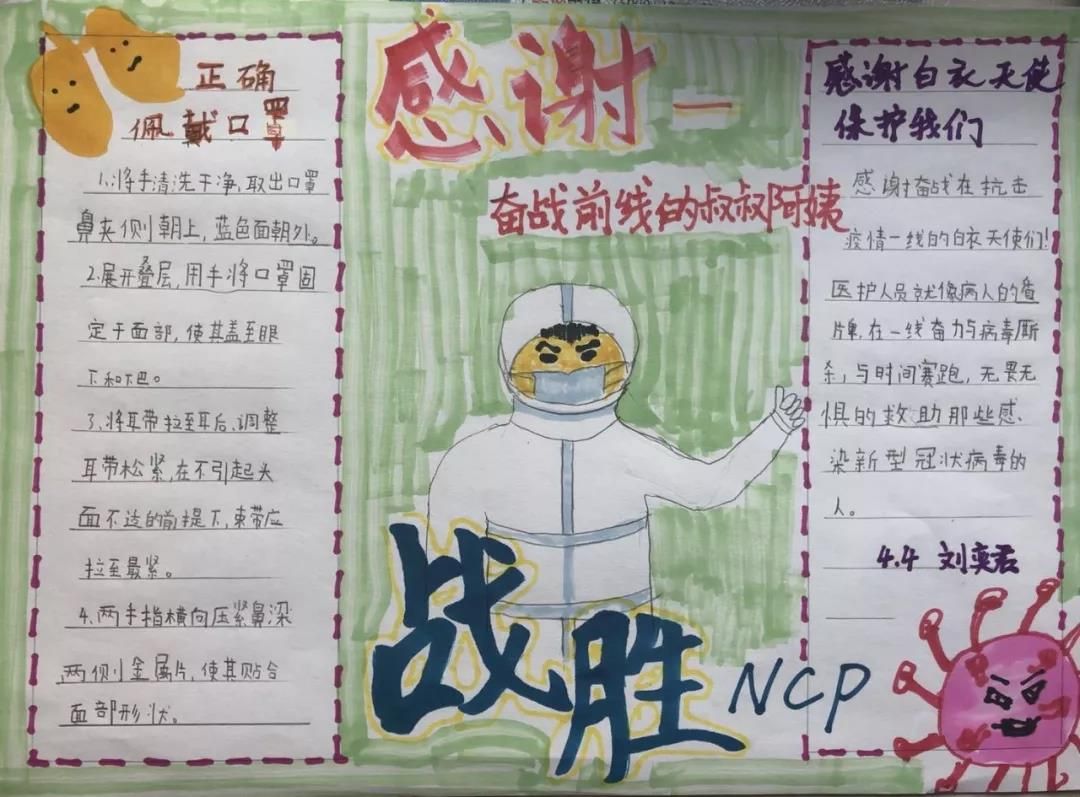 正确
佩戴口罩
1、将手清洗干净,取出口罩
鼻夹侧朝上,蓝色面朝外。
2.展开叠层,用手将口罩固
定于面部,使其盖至眼
下和下巴。
3、将耳带拉至耳后、调整
耳带松紧,在不引起头
面不适的前提下,束带应
拉至最紧。
4、两手指横向压紧鼻深
两侧金属片,使其贴合
面部形状。
感谢一
奋战前线的叔叔阿姨
战胜
NCP
感谢白衣天使
保护我们
感谢奋战在抗击
疫情一线的白衣天使们!
医护人员就像病人的盾
牌,在一线奋力与病毒厮
杀,与时间赛跑,无畏无
惧的救助那些感
染新型冠状病毒的
人。
4.4 刘奕君